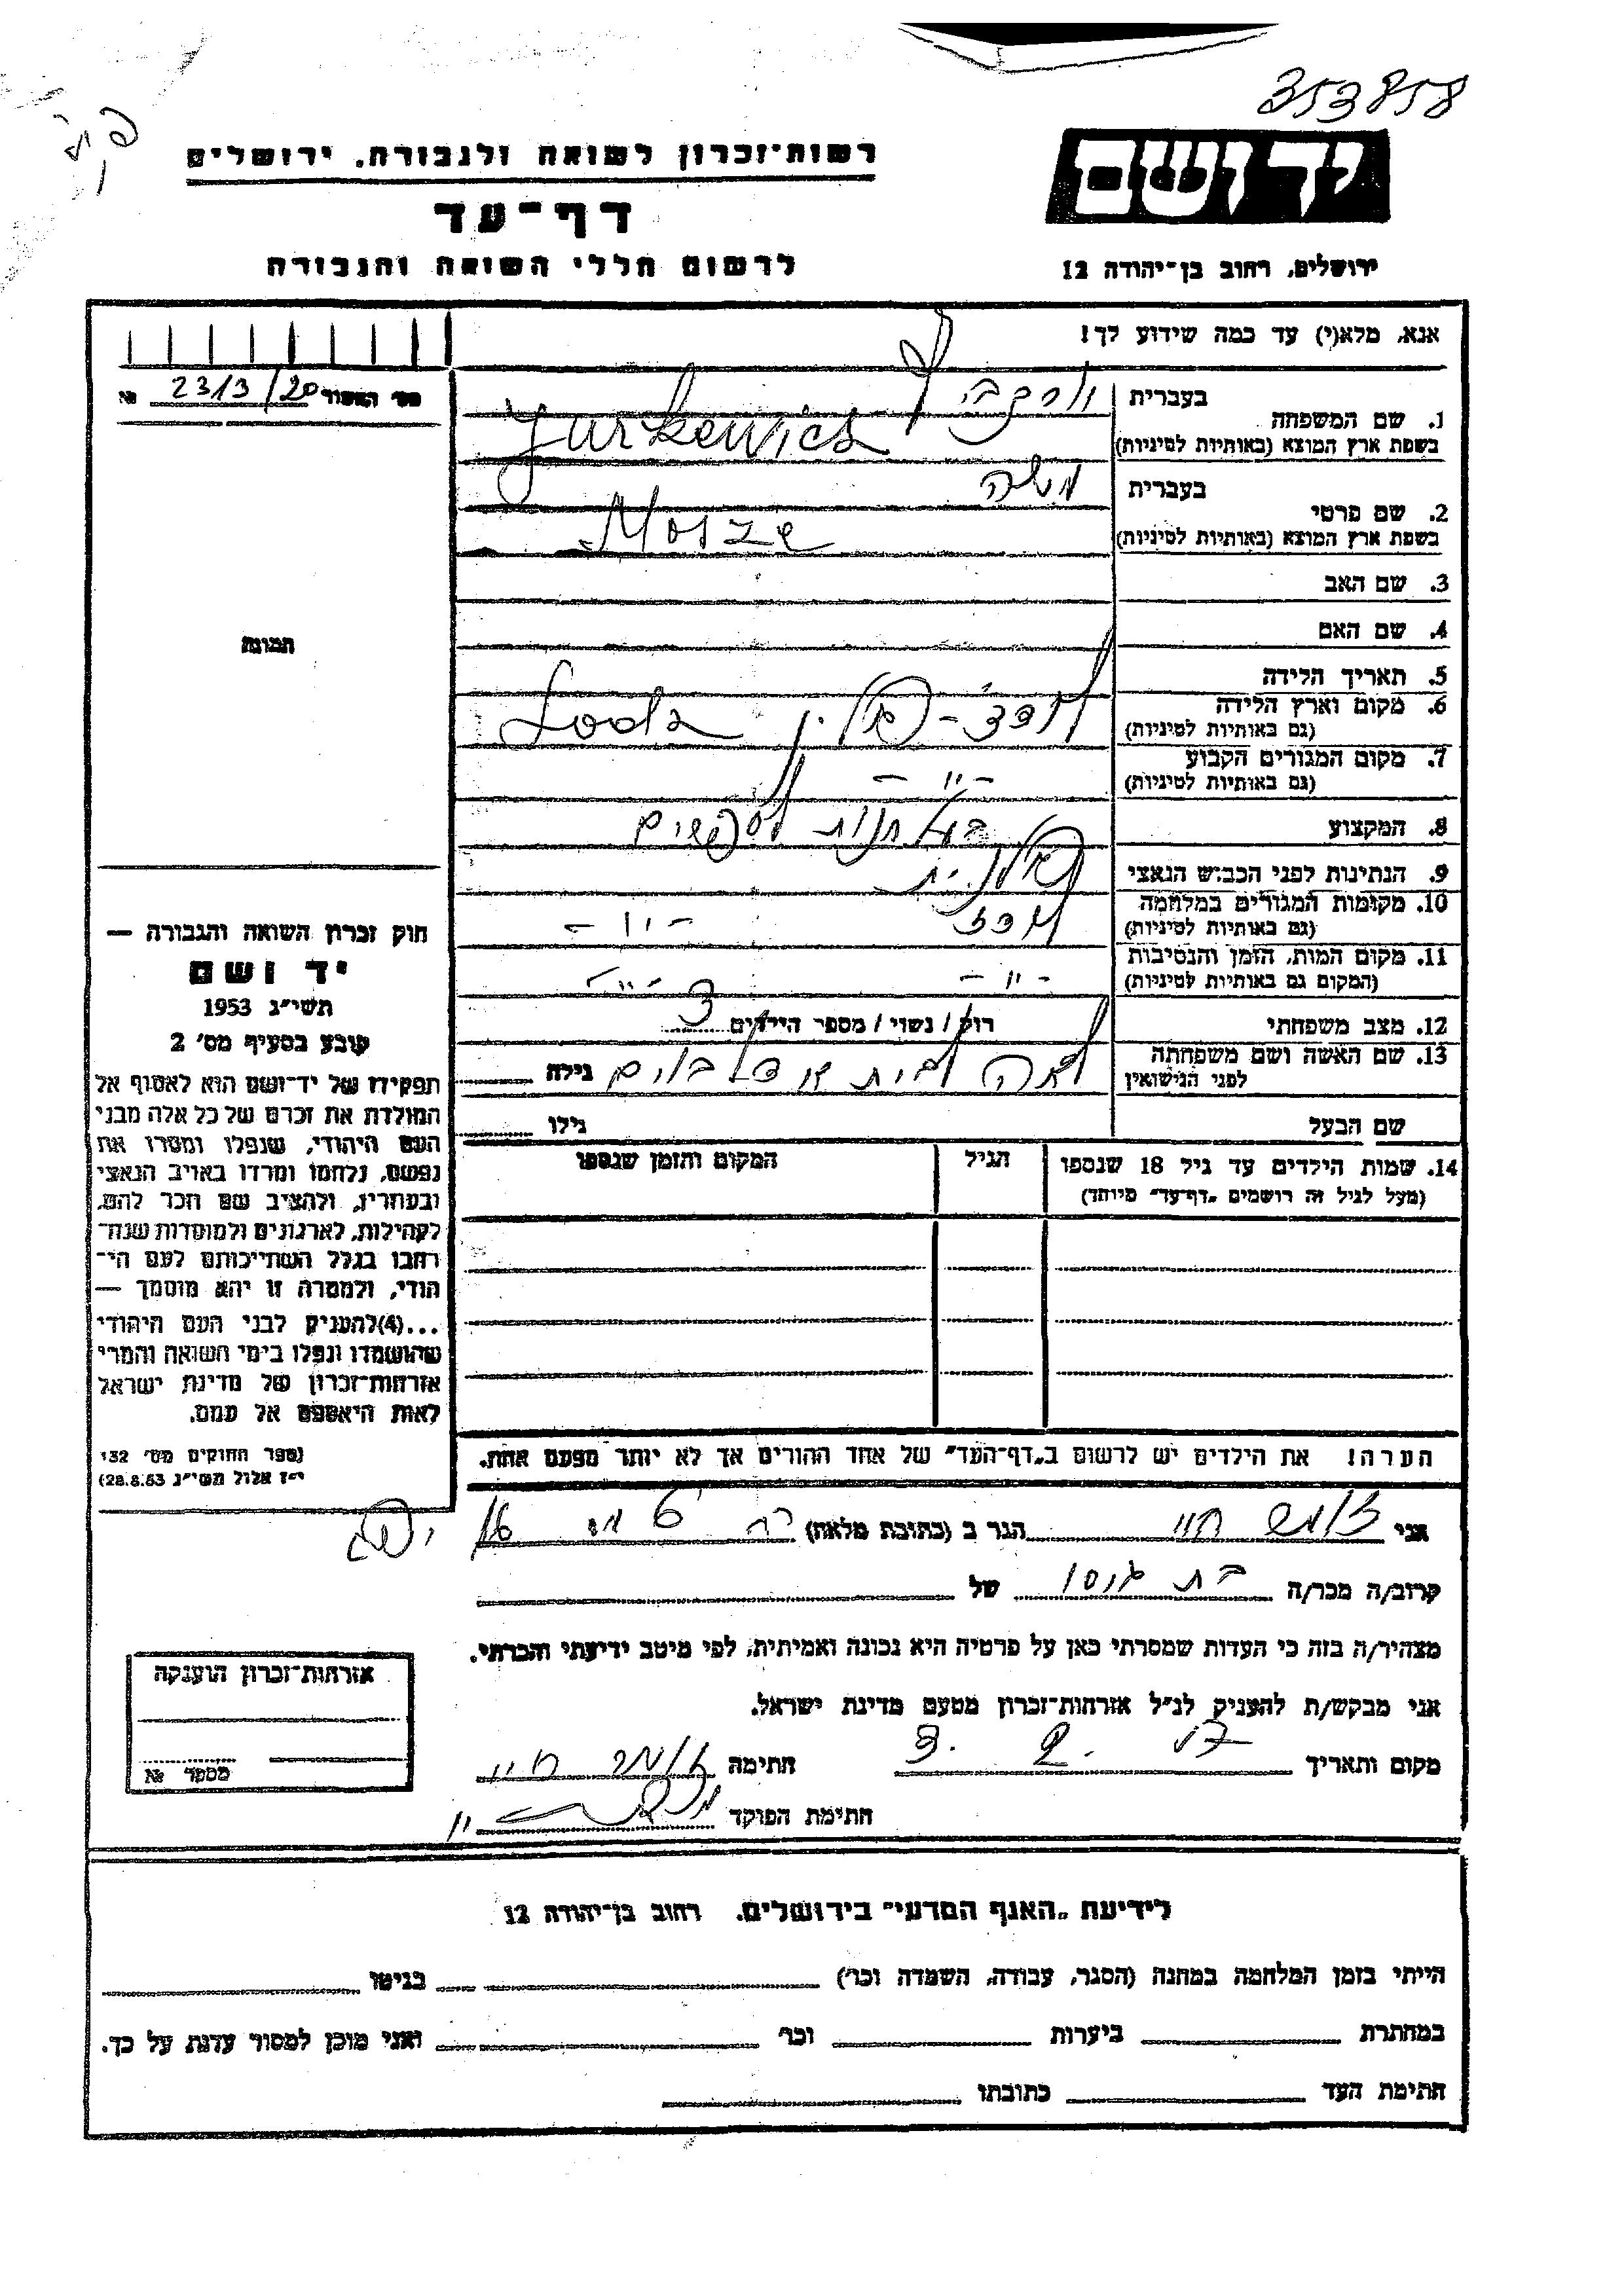 353858
יד ושם
ירושלים, רחוב בן־יהודה 12
רשות־זכרון לשואה ולגבורה, ירושלים
דף־עד
לרשום חללי השואה והגבורה
אנא, מלא(י) עד כמה שידוע לך!
מס׳ האשור 2313/20 №
1. שם המשפחה
בעברית
בשפת ארץ המוצא (באותיות לטיניות) Jurkewicz
2. שם פרטי
בעברית משה
בשפת ארץ המוצא (באותיות לטיניות) Mosze
3. שם האב
4. שם האם
5. תאריך הלידה
6. מקום וארץ הלידה לודז׳ - פולין
(גם באותיות לטיניות)
7. מקום המגורים הקבוע - " -
(גם באותיות לטיניות)
8. המקצוע בעל חנות
9. הנתינות לפני הכבוש הנאצי פולנית
10. מקומות המגורים במלחמה לודז - " -
(גם באותיות לטיניות)
11. מקום המות, הזמן והנסיבות - " - - " -
(המקום גם באותיות לטיניות)
12. מצב משפחתי רווק / נשוי / מספר הילדים 3
13. שם האשה ושם משפחתה
לפני הנישואין לאה לבית גילה
שם הבעל גילו
14. שמות הילדים עד גיל 18 שנספו
(מעל לגיל זה רושמים „דף־עד" מיוחד)
הגיל
המקום והזמן שנספו
הערה! את הילדים יש לרשום ב„דף־העד" של אחד ההורים אך לא יותר מפעם אחת.
תמונה
חוק זכרון השואה והגבורה —
יד ושם
תשי"ג 1953
קובע בסעיף מס׳ 2
תפקידו של יד־ושם הוא לאסוף אל
המולדת את זכרם של כל אלה מבני
העם היהודי, שנפלו ומסרו את
נפשם, נלחמו ומרדו באויב הנאצי
ובעוזריו, ולהציב שם וזכר להם,
לקהילות, לארגונים ולמוסדות שנח־
רבו בגלל השתייכותם לעם הי־
הודי, ולמטרה זו יהא מוסמך —
...(4)להעניק לבני העם היהודי
שהושמדו ונפלו בימי השואה והמרי
אזרחות־זכרון של מדינת ישראל
לאות היאספם אל עמם.
(ספר החוקים מס׳ 132
י"ז אלול תשי"ג 28.8.53)
אני חיו הגר ב (כתובת מלאה) רח
קרוב/ה מכר/ה של
מצהיר/ה בזה כי העדות שמסרתי כאן על פרטיה היא נכונה ואמיתית, לפי מיטב ידיעתי והכרתי.
אני מבקש/ת להעניק לנ"ל אזרחות־זכרון מטעם מדינת ישראל.
מקום ותאריך חתימה
חתימת הפוקד
אזרחות־זכרון הוענקה
מספר №
לידיעת „האגף המדעי" בירושלים, רחוב בן־יהודה 12
הייתי בזמן המלחמה במחנה (הסגר, עבודה, השמדה וכו׳) בגיטו
במחתרת ביערות וכו׳ ואני מוכן למסור עדות על כך.
חתימת העד כתובתו